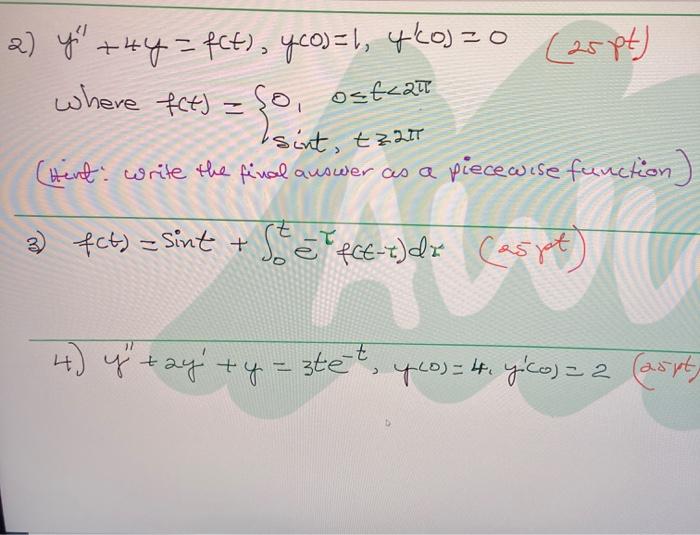 2) y'' + 4y = f(t), y(0)=1, y'(0) = 0 (25 pt)
where f(t) = { 0, 0≤t<2π
sint, t≥2π
(Hint: write the final answer as a piecewise function)
3) f(t) = Sint + ∫₀ᵗ e^-τ f(t-τ)dτ (25 pt)
4) y'' + 2y' + y = 3te^-t, y(0)=4, y'(0)=2 (25 pt)